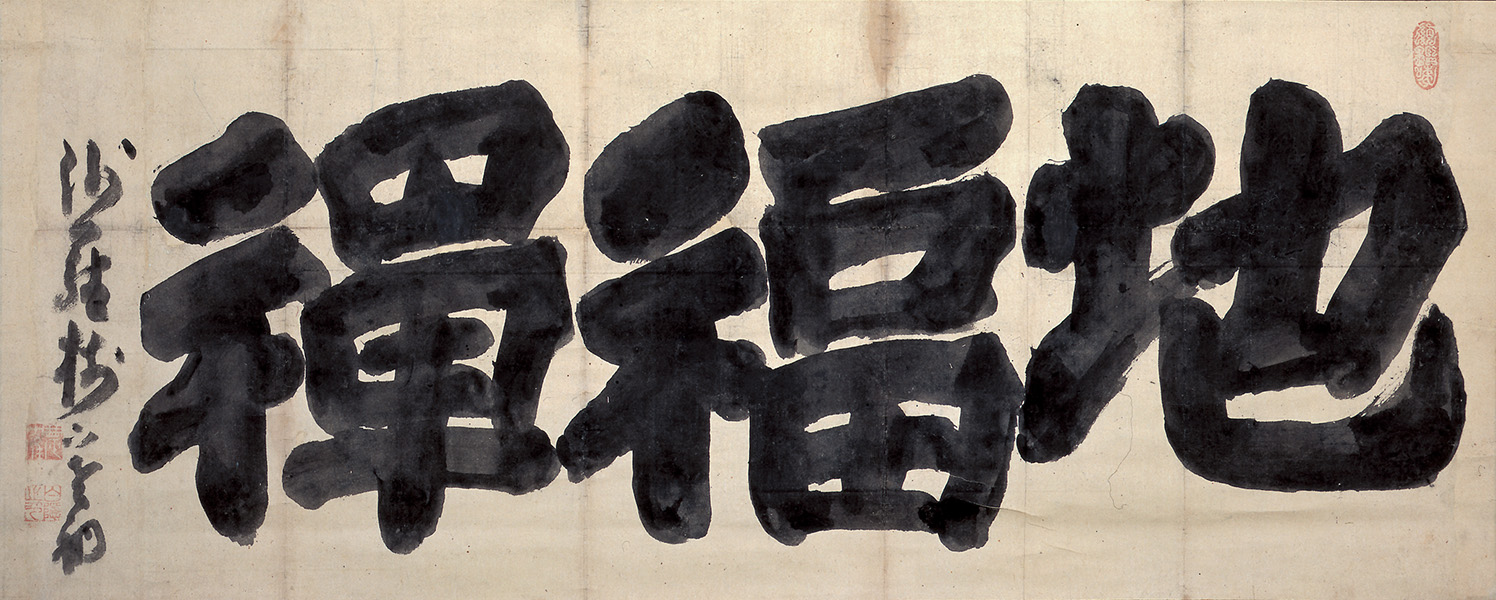 地福禪
沙羅樹下老衲